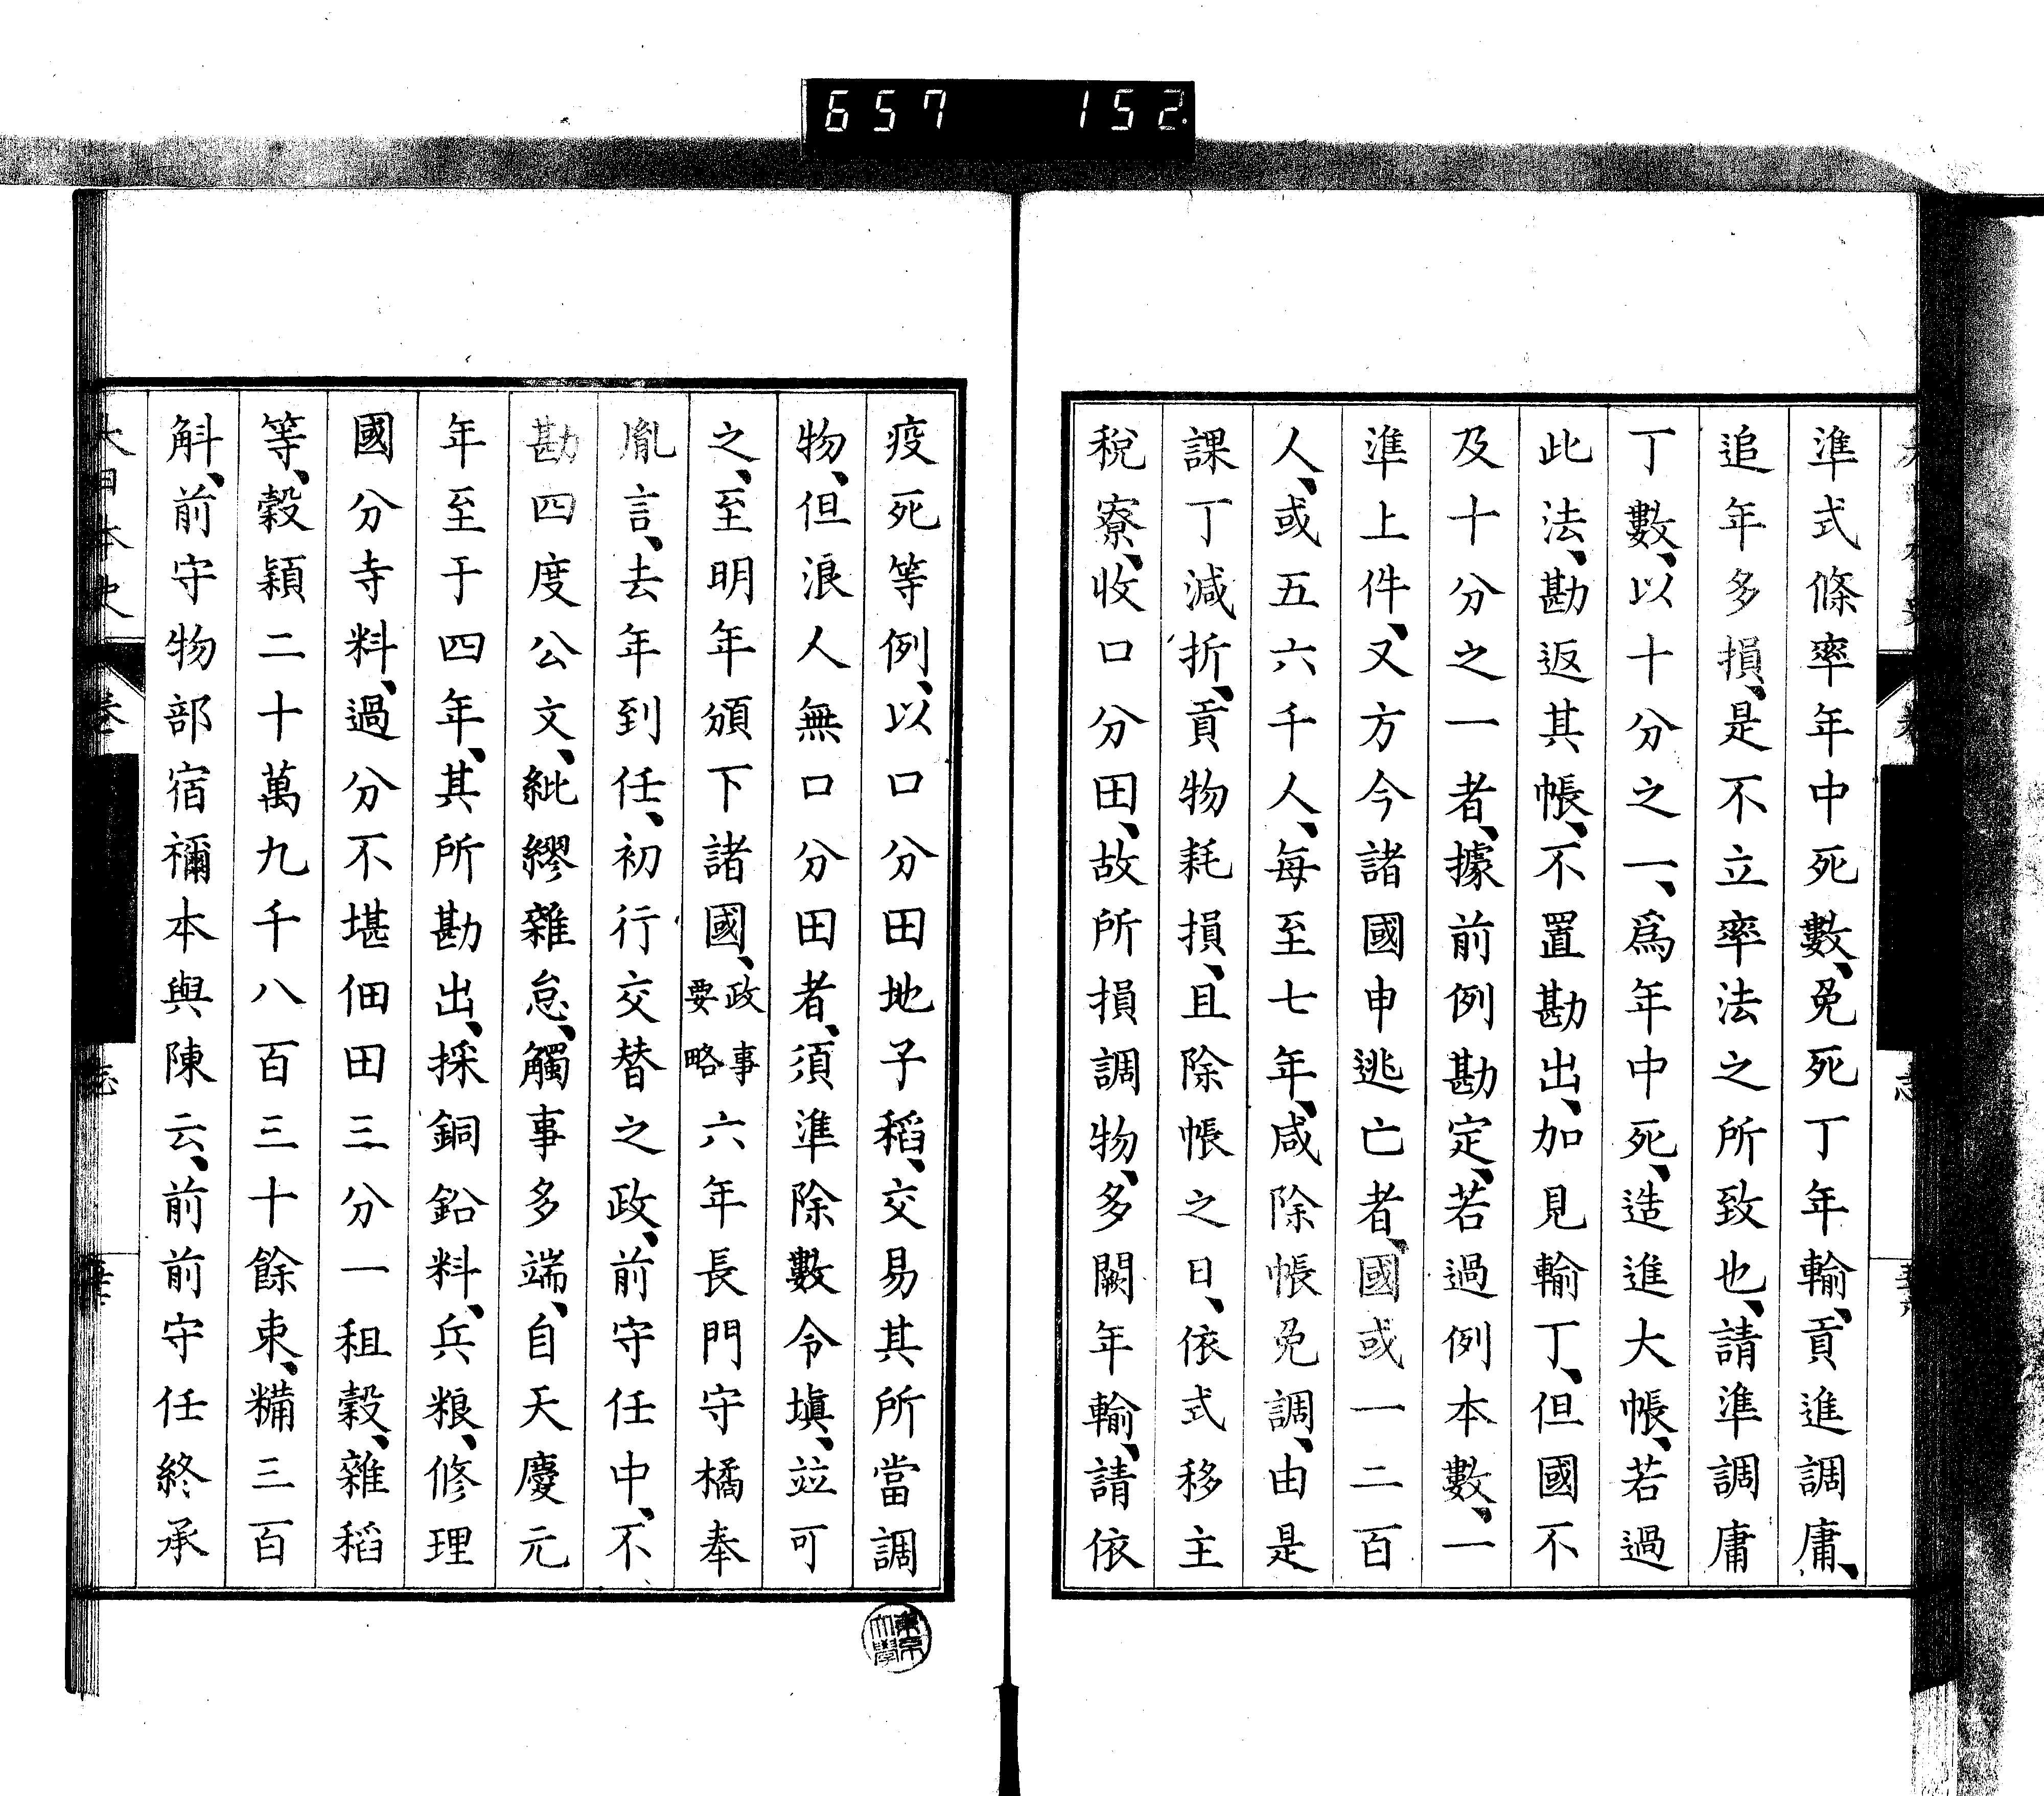 657 152
準式條率年中死數、免死丁年輸、貢進調庸、
追年多損、是不立率法之所致也、請準調庸
丁數、以十分之一、爲年中死、造進大帳、若過
此法、勘返其帳、不置勘出、加見輸丁、但國不
及十分之一者、據前例勘定、若過例本數、一
準上件、又方今諸國申逃亡者、國或一二百
人、或五六千人、每至七年、咸除帳免調、由是
課丁減折、貢物耗損、且除帳之日、依式移主
稅寮、收口分田、故所損調物、多闕年輸、請依
疫死等例、以口分田地子稻、交易其所當調
物、但浪人無口分田者、須準除數令塡、竝可
之、至明年頒下諸國、政事要略六年長門守橘奉
胤言、去年到任、初行交替之政、前守任中、不
勘四度公文、紕繆雜怠、觸事多端、自天慶元
年至于四年、其所勘出、採銅鉛料、兵粮、修理
國分寺料、過分不堪佃田三分一租穀、雜稻
等、穀穎二十萬九千八百三十餘束、糒三百
斛、前守物部宿禰本與陳云、前前守任終承
大日本史 卷 志